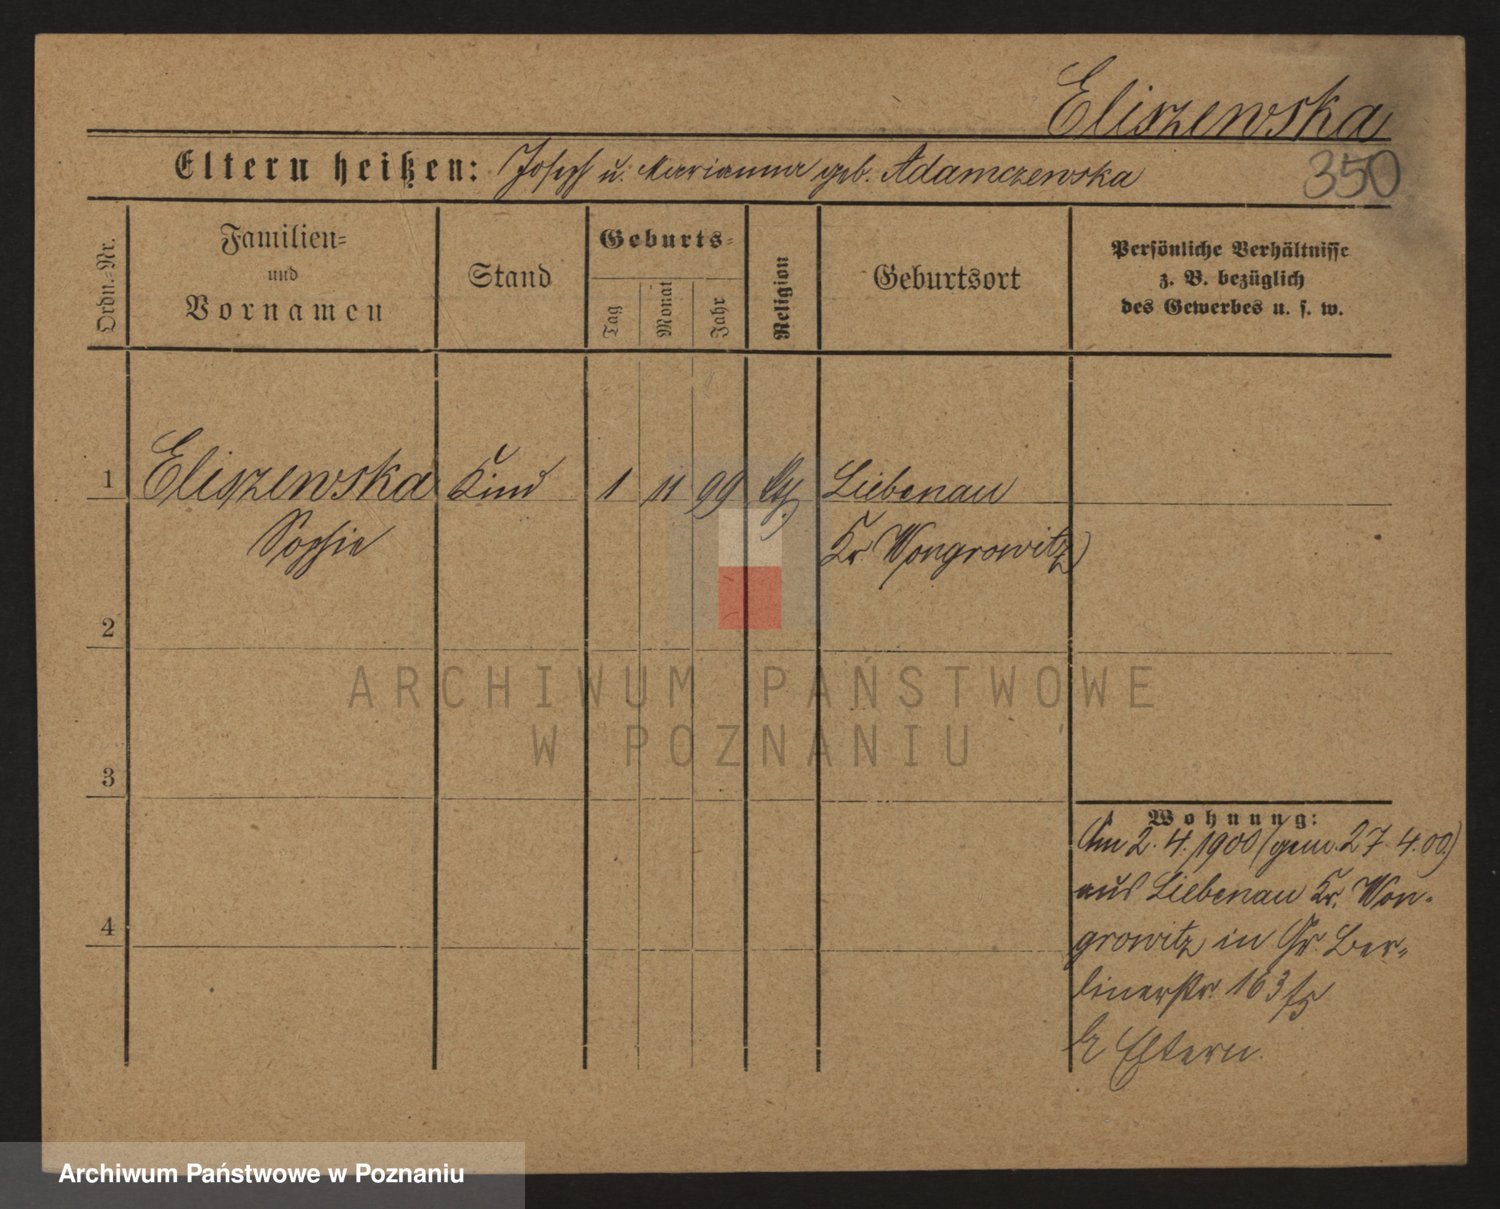 Eliszewska
Eltern heißen: Joseph u. Marianna geb. Adamczewska
350
Ordn.-Nr.
Familien-
und
Vornamen
Stand
Geburts-
Tag
Monat
Jahr
Religion
Geburtsort
Persönliche Verhältnisse
z. B. bezüglich
des Gewerbes u. s. w.
1 Eliszewska Kind 1 11 99 Liebenau
Sophie Kr. Wongrowitz
2
ARCHIWUM PAŃSTWOWE
W POZNANIU
3
Wohnung:
Am 2. 4. 1900 (gem. 27. 4. 00)
aus Liebenau Kr. Won-
4
growitz in Gr. Ber-
linerstr. 163
Eltern.
Archiwum Państwowe w Poznaniu